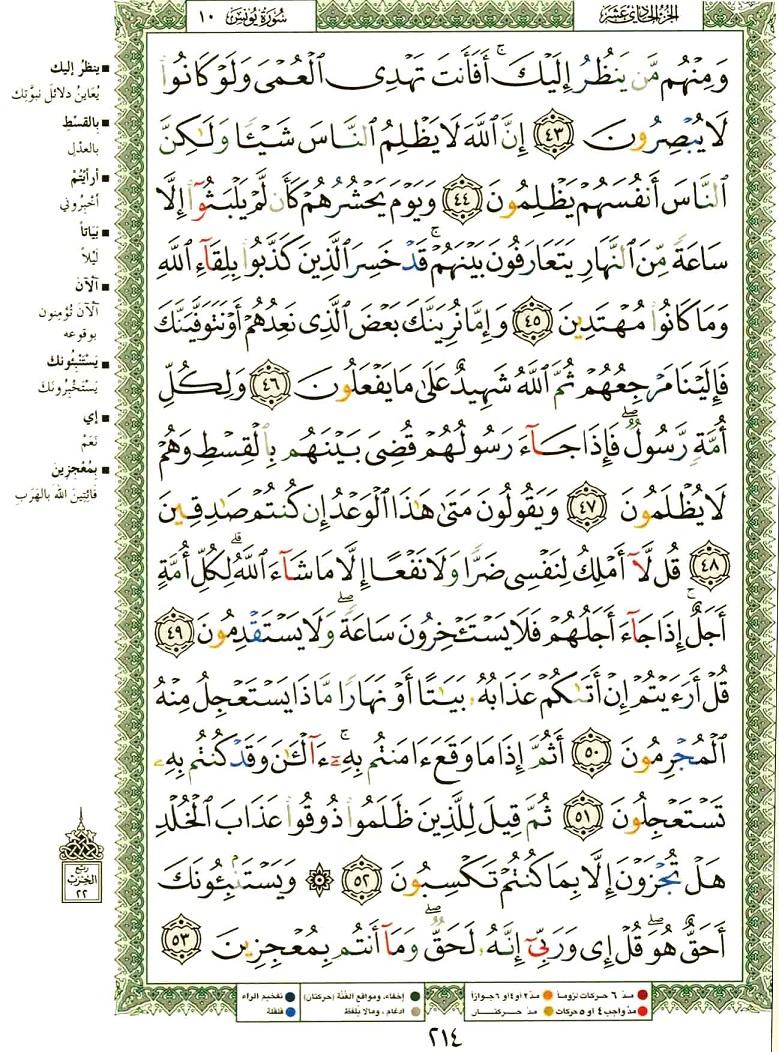 الجزء الحادي عشر
سورة يونس ١٠
وَمِنْهُم مَّن يَنظُرُ إِلَيْكَ ۚ أَفَأَنتَ تَهْدِى ٱلْعُمْىَ وَلَوْ كَانُوا۟
لَا يُبْصِرُونَ ٤٣ إِنَّ ٱللَّهَ لَا يَظْلِمُ ٱلنَّاسَ شَيْـًٔا وَلَـٰكِنَّ
ٱلنَّاسَ أَنفُسَهُمْ يَظْلِمُونَ ٤٤ وَيَوْمَ يَحْشُرُهُمْ كَأَن لَّمْ يَلْبَثُوٓا۟ إِلَّا
سَاعَةً مِّنَ ٱلنَّهَارِ يَتَعَارَفُونَ بَيْنَهُمْ ۚ قَدْ خَسِرَ ٱلَّذِينَ كَذَّبُوا۟ بِلِقَآءِ ٱللَّهِ
وَمَا كَانُوا۟ مُهْتَدِينَ ٤٥ وَإِمَّا نُرِيَنَّكَ بَعْضَ ٱلَّذِى نَعِدُهُمْ أَوْ نَتَوَفَّيَنَّكَ
فَإِلَيْنَا مَرْجِعُهُمْ ثُمَّ ٱللَّهُ شَهِيدٌ عَلَىٰ مَا يَفْعَلُونَ ٤٦ وَلِكُلِّ
أُمَّةٍ رَّسُولٌ ۖ فَإِذَا جَآءَ رَسُولُهُمْ قُضِىَ بَيْنَهُم بِٱلْقِسْطِ وَهُمْ
لَا يُظْلَمُونَ ٤٧ وَيَقُولُونَ مَتَىٰ هَـٰذَا ٱلْوَعْدُ إِن كُنتُمْ صَـٰدِقِينَ
٤٨ قُل لَّآ أَمْلِكُ لِنَفْسِى ضَرًّا وَلَا نَفْعًا إِلَّا مَا شَآءَ ٱللَّهُ ۗ لِكُلِّ أُمَّةٍ
أَجَلٌ ۚ إِذَا جَآءَ أَجَلُهُمْ فَلَا يَسْتَـْٔخِرُونَ سَاعَةً ۖ وَلَا يَسْتَقْدِمُونَ ٤٩
قُلْ أَرَءَيْتُمْ إِنْ أَتَىٰكُمْ عَذَابُهُۥ بَيَـٰتًا أَوْ نَهَارًا مَّاذَا يَسْتَعْجِلُ مِنْهُ
ٱلْمُجْرِمُونَ ٥٠ أَثُمَّ إِذَا مَا وَقَعَ ءَامَنتُم بِهِۦٓ ۚ ءَآلْـَٔـٰنَ وَقَدْ كُنتُم بِهِۦ
تَسْتَعْجِلُونَ ٥١ ثُمَّ قِيلَ لِلَّذِينَ ظَلَمُوا۟ ذُوقُوا۟ عَذَابَ ٱلْخُلْدِ
هَلْ تُجْزَوْنَ إِلَّا بِمَا كُنتُمْ تَكْسِبُونَ ٥٢ ۞ وَيَسْتَنۢبِـُٔونَكَ
أَحَقٌّ هُوَ ۖ قُلْ إِى وَرَبِّىٓ إِنَّهُۥ لَحَقٌّ ۖ وَمَآ أَنتُم بِمُعْجِزِينَ ٥٣
■ ينظرُ إليك
يُعَاينُ دلائلَ نبوَّتِك
■ بالقسْطِ
بالعَدْلِ
■ أرأيْتُمْ
أخْبِرُوني
■ بَيَاتاً
لَيْلاً
■ آلآن
آلآنَ تُؤمِنُون
بوقوعه
■ يَسْتَنْبِئُونك
يَسْتَخْبِرُونَكَ
■ إي
نَعَمْ
■ بمُعْجِزِين
فَائِتِينَ اللهَ بالهَرَبِ
ربع
الحزب
٢٢
مدّ ٦ حركات لزوماً
مدّ ٢ أو ٤ أو ٦ جوازاً
إخفاء، ومواقع الغُنَّة (حركتان)
تفخيم الراء
مدّ واجب ٤ أو ٥ حركات
مدّ حركتان
ادغام، ومالا يُلفظ
قلقلة
٢١٤